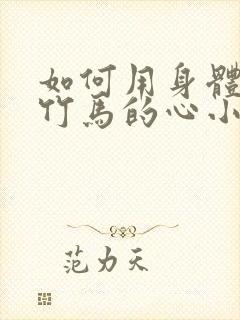 如何用身體
竹馬的心小
范力天